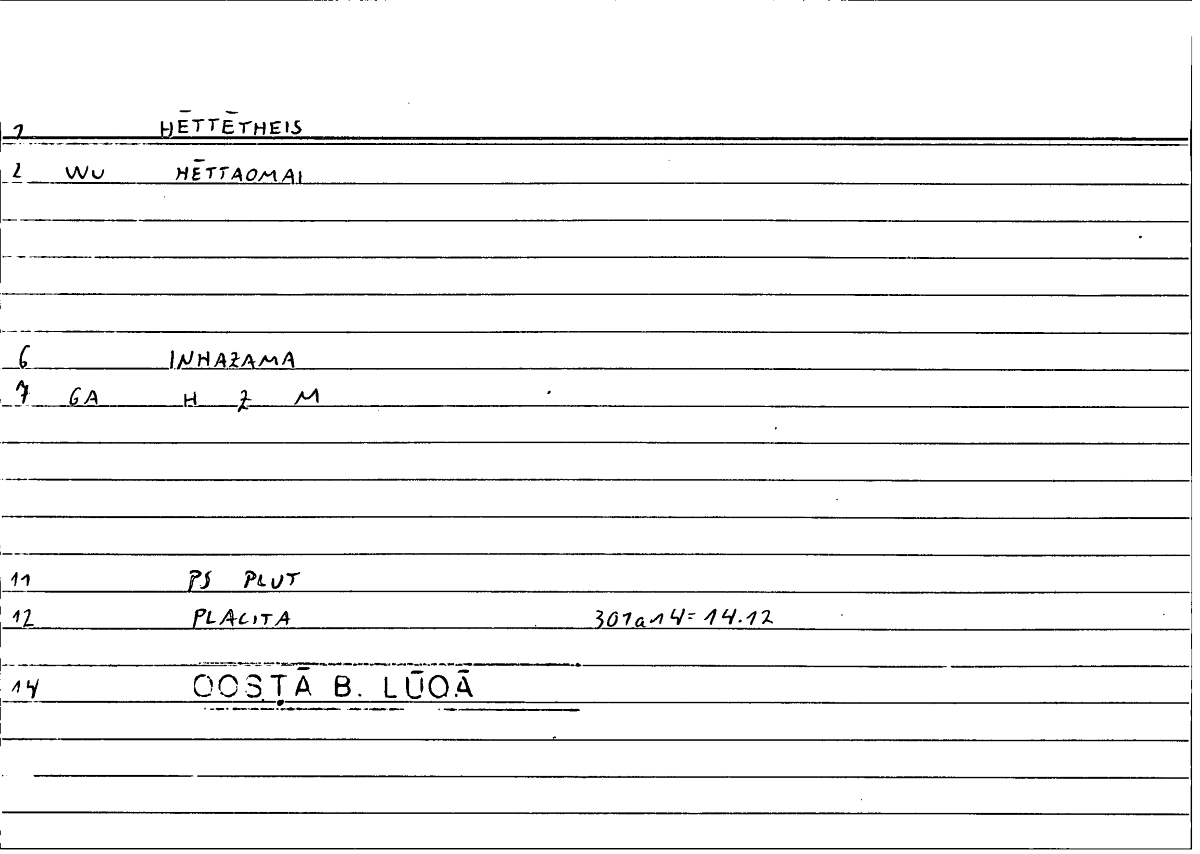 1 HĒTTĒTHEIS
2 WU HĒTTAOMAI
6 INHAZAMA
7 GA H Z M
11 PS PLUT
12 PLACITA 301a14=14.12
14 QOSṬĀ B. LŪQĀ